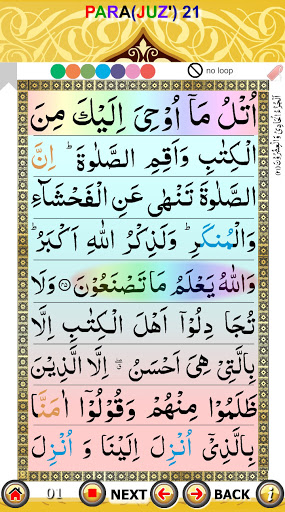 PARA(JUZ') 21
no loop
اُتْلُ مَآ اُوْحِیَ اِلَيْكَ مِنَ
الْكِتٰبِ وَاَقِمِ الصَّلٰوةَ ؕ اِنَّ
الصَّلٰوةَ تَنْهٰى عَنِ الْفَحْشَآءِ
وَالْمُنْكَرِ ؕ وَلَذِكْرُ اللّٰهِ اَكْبَرُ ؕ
وَاللّٰهُ يَعْلَمُ مَا تَصْنَعُوْنَ ﴿۴۵﴾ وَلَا
تُجَادِلُوْۤا اَهْلَ الْكِتٰبِ اِلَّا
بِالَّتِىْ هِىَ اَحْسَنُ ۖ اِلَّا الَّذِيْنَ
ظَلَمُوْا مِنْهُمْ وَقُوْلُوْۤا اٰمَنَّا
بِالَّذِىْۤ اُنْزِلَ اِلَيْنَا وَ اُنْزِلَ
01 NEXT BACK